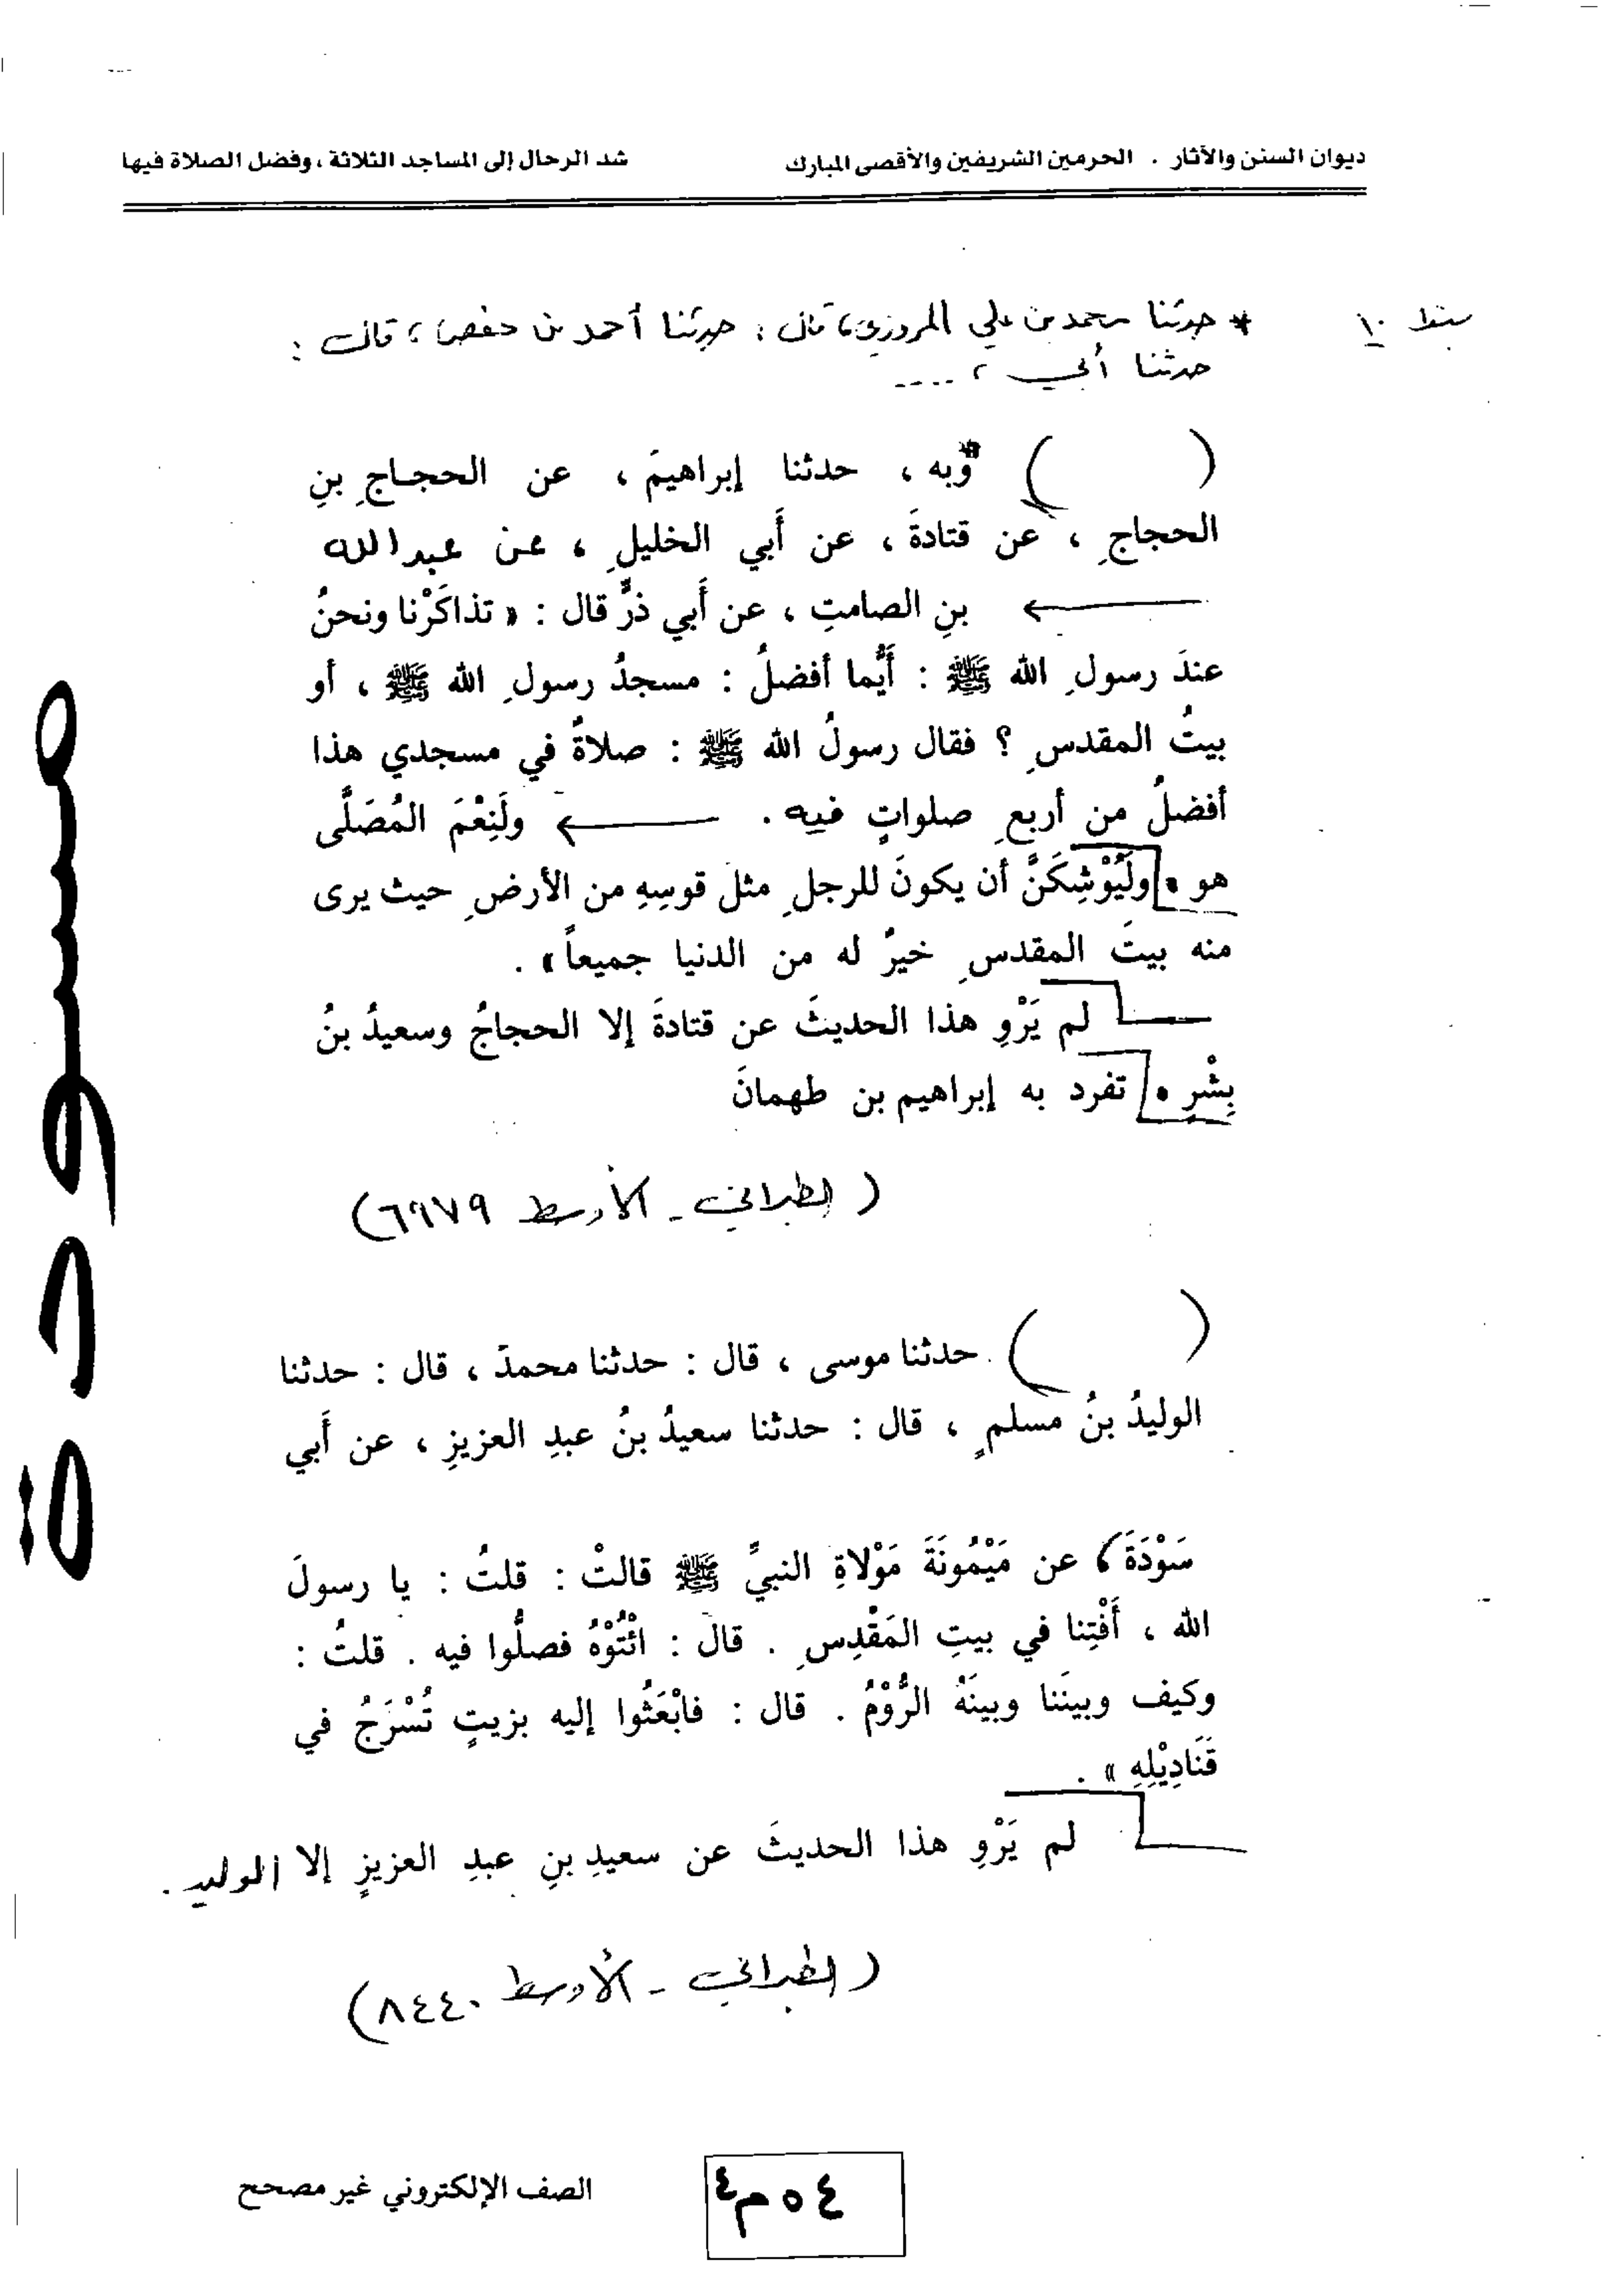 ديوان السنن والآثار . الحرمين الشريفين والأقصى المبارك شد الرحال إلى المساجد الثلاثة ، وفضل الصلاة فيها
بنط ١٠ * حدثنا محمد بن علي المروزي ، قال : حدثنا أحمد بن حفص ، قال :
حدثنا أبي ، ....
( ) وَبه ، حدثنا إبراهيمَ ، عن الحجاجِ بنِ
الحجاجِ ، عن قتادةَ ، عن أَبي الخليلِ ، عن عبد الله
بنِ الصامتِ ، عن أَبي ذرٍّ قال : « تذاكَرْنا ونحنُ
عندَ رسولِ الله ﷺ : أَيُّما أفضلُ : مسجدُ رسولِ الله ﷺ ، أو
بيتُ المقدسِ ؟ فقال رسولُ الله ﷺ : صلاةٌ في مسجدي هذا
أفضلُ من أربعِ صلواتٍ فيه . ولَنِعْمَ المُصَلَّى
هو . ولَيُوْشِكَنَّ أن يكونَ للرجلِ مثلَ قوسِهِ من الأرضِ حيث يرى
منه بيتَ المقدسِ خيرٌ له من الدنيا جميعاً » .
لم يَرْوِ هذا الحديثَ عن قتادةَ إلا الحجاجُ وسعيدُ بنُ
بِشْرٍ . تفرد به إبراهيم بن طهمانَ
( الطبراني - الأوسط ٦٩٧٩ )
( ) حدثنا موسى ، قال : حدثنا محمدَ ، قال : حدثنا
الوليدُ بنُ مسلمٍ ، قال : حدثنا سعيدُ بنُ عبدِ العزيزِ ، عن أَبي
سَوْدَةَ ، عن مَيْمُونَةَ مَوْلاةِ النبيِّ ﷺ قالتْ : قلتُ : يا رسولَ
الله ، أَفْتِنا في بيتِ المَقْدِسِ . قالَ : ائْتُوْهُ فصلُّوا فيه . قلتُ :
وكيف وبينَنا وبينَهُ الرُّوْمُ . قال : فابْعَثُوا إليه بزيتٍ تُسْرَجُ في
قَنَادِيْلِهِ » .
لم يَرْوِ هذا الحديثَ عن سعيدِ بنِ عبدِ العزيزِ إلا الوليد .
( الطبراني - الأوسط ٨٤٤٠ )
مسودة
٤٥م٤
الصف الإلكتروني غير مصحح